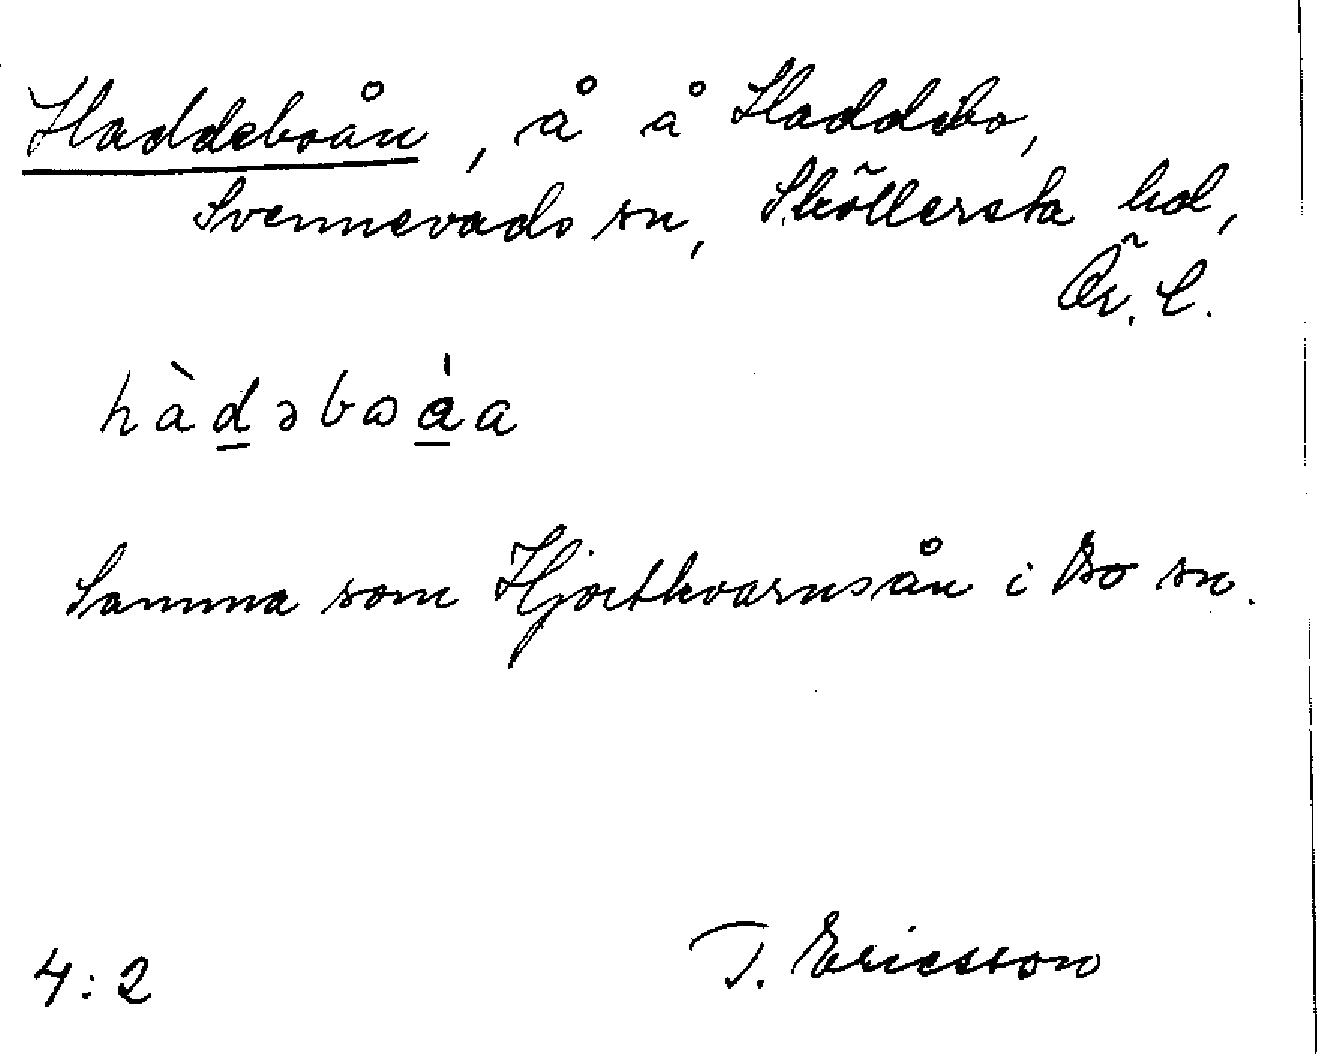 Haddeboån, å å Haddebo,
Svennevads sn, Sköllersta hd,
Ör. l.
hàdəbωáa
Samma som Hjortkvarnsån i Bo sn.
4:2 T. Ericsson